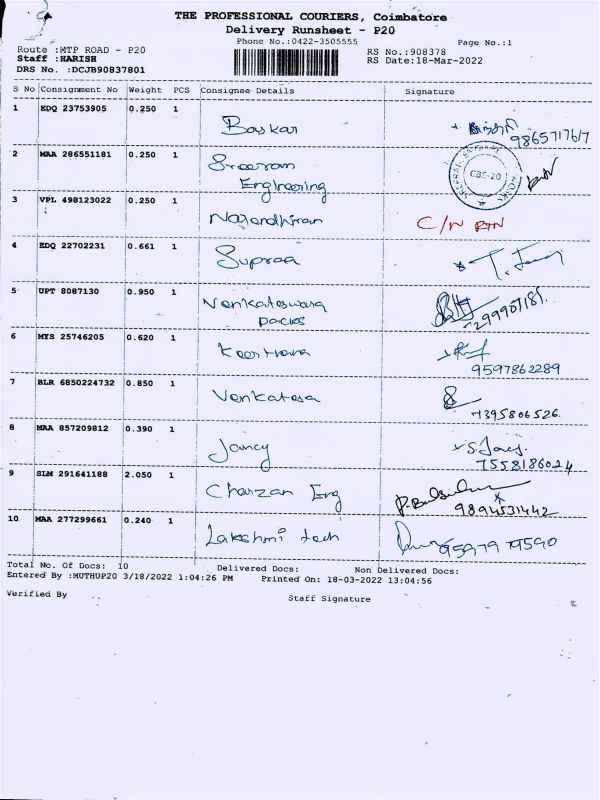 THE PROFESSIONAL COURIERS, Coimbatore
Delivery Runsheet - P20
Phone No.:0422-3505555 Page No.:1
Route :MTP ROAD - P20 RS No.:908378
Staff :HARISH RS Date:18-Mar-2022
DRS No. :DCJB90837801
S No Consignment No Weight PCS Consignee Details Signature
1 EDQ 23753905 0.250 1
Baskar
9865717617
2 MAA 286551181 0.250 1
Sreeram
Engineering
CBE-20
3 VPL 498123022 0.250 1
Narendhiran C/N RTN
4 EDQ 22702231 0.661 1
Supraa
5 UPT 8087130 0.950 1
Venkateswara
Packs
299907181.
6 MYS 25746205 0.620 1
Keerthana
9597862289
7 BLR 6850224732 0.850 1
Venkatesa
7395806526.
8 MAA 857209812 0.390 1
Jancy
7558186024
9 SLM 291641188 2.050 1
Charzan Eng
9894531442
10 MAA 277299661 0.240 1
Lakshmi tech
Total No. Of Docs: 10 Delivered Docs: Non Delivered Docs:
Entered By :MUTHUP20 3/18/2022 1:04:26 PM Printed On: 18-03-2022 13:04:56
Verified By Staff Signature